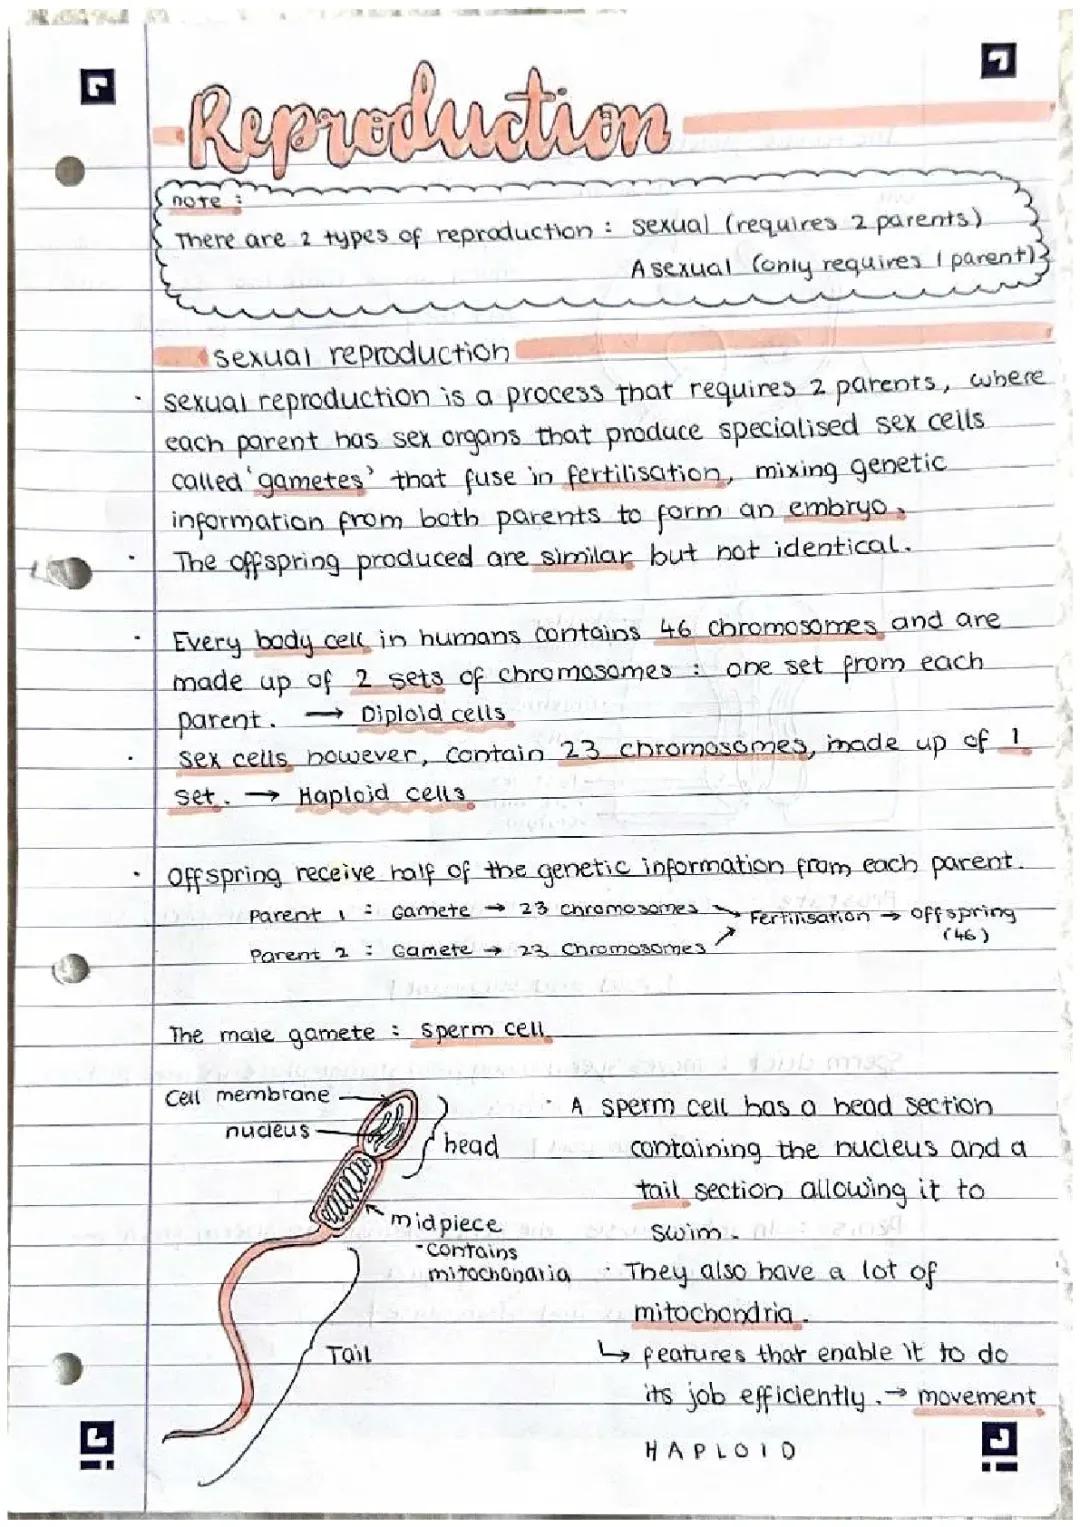 Reproduction
note :
There are 2 types of reproduction : sexual (requires 2 parents)
Asexual (only requires 1 parent)
sexual reproduction
· sexual reproduction is a process that requires 2 parents, where
each parent has sex organs that produce specialised sex cells
called 'gametes' that fuse in fertilisation, mixing genetic
information from both parents to form an embryo.
· The offspring produced are similar but not identical.
· Every body cell in humans contains 46 chromosomes and are
made up of 2 sets of chromosomes : one set from each
parent. → Diploid cells
· sex cells however, contain 23 chromosomes, made up of 1
set. → Haploid cells
· Offspring receive half of the genetic information from each parent.
Parent 1 : Gamete → 23 chromosomes → Fertilisation → offspring
(46)
Parent 2 : Gamete → 23 Chromosomes
The male gamete : sperm cell
Cell membrane
nucleus
head
midpiece
-contains
mitochondria
Tail
· A sperm cell has a head section
containing the nucleus and a
tail section allowing it to
swim.
· They also have a lot of
mitochondria.
↳ features that enable it to do
its job efficiently. → movement
HAPLOID